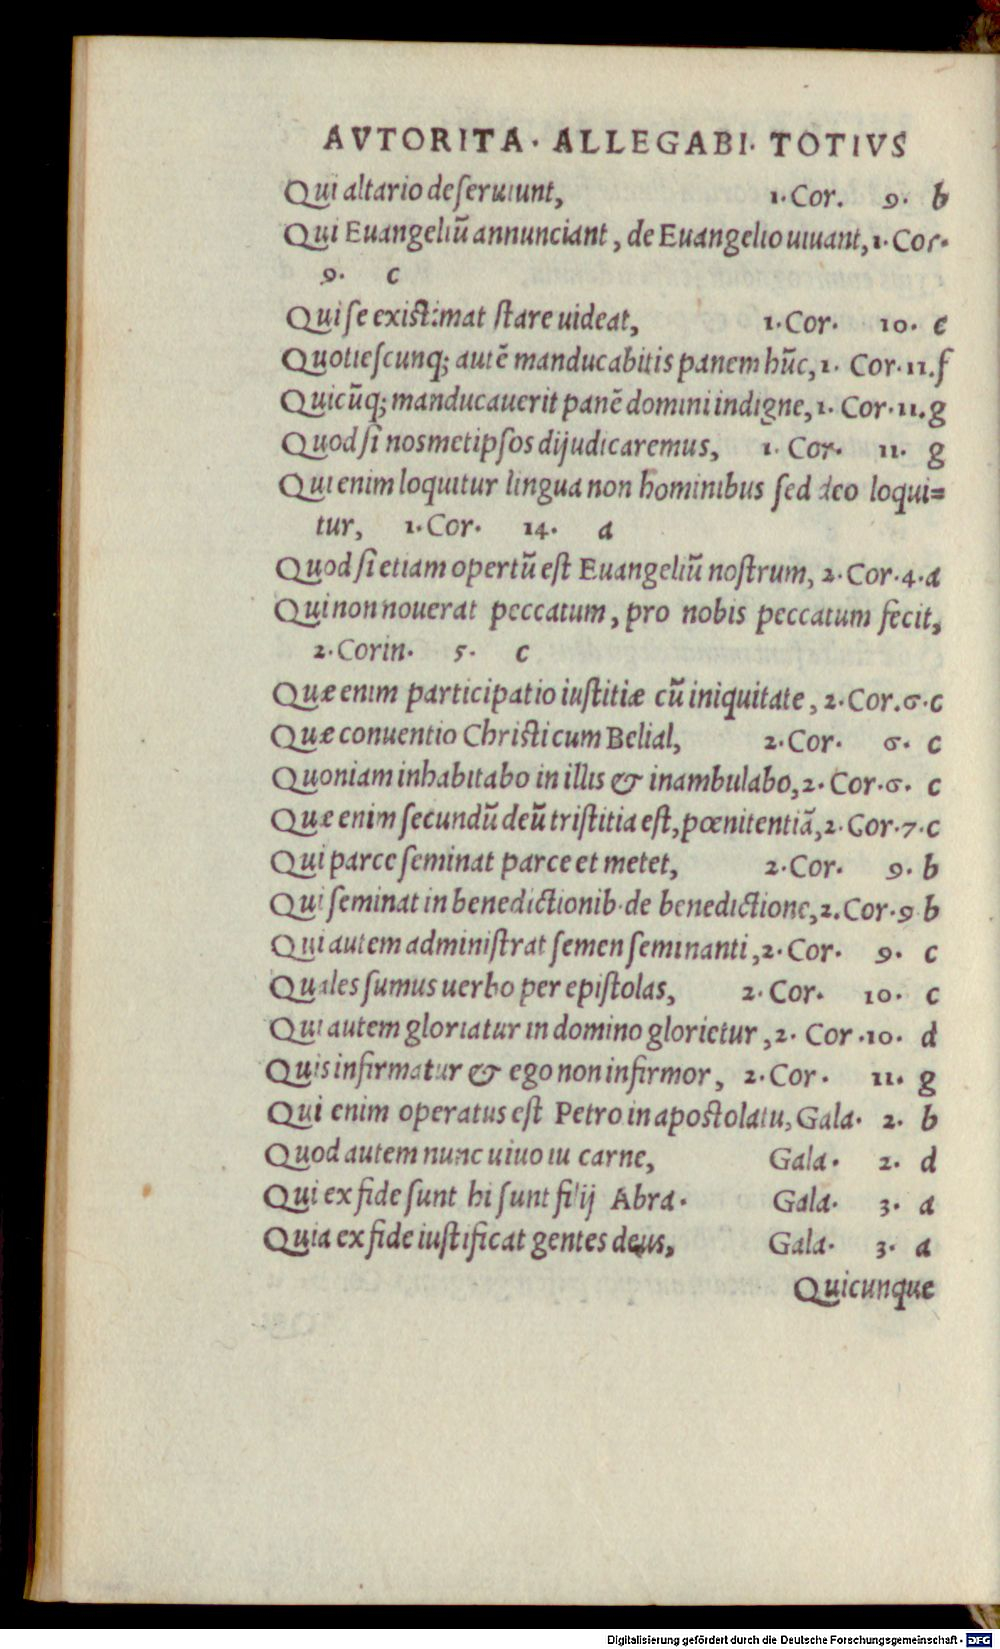 AVTORITA· ALLEGABI· TOTIVS
Qui altario deſeruiunt, 1·Cor. 9· b
Qui Euangeliũ annunciant, de Euangelio uiuant, 1·Cor·
9· c
Qui ſe existimat ſtare uideat, 1·Cor· 10· c
Quotieſcunq; autẽ manducabitis panem hũc, 1· Cor·11.f
Quicũq; manducauerit panẽ domini indigne, 1· Cor·11.g
Quod ſi nosmetipſos dijudicaremus, 1· Cor· 11· g
Qui enim loquitur lingua non hominibus ſed deo loqui=
tur, 1·Cor· 14· a
Quod ſi etiam opertũ eſt Euangeliũ noſtrum, 2·Cor·4·a
Qui non nouerat peccatum, pro nobis peccatum fecit,
2·Corin· 5· c
Quæ enim participatio iuſtitiæ cũ iniquitate, 2·Cor.6·c
Quæ conuentio Christi cum Belial, 2·Cor· 6· c
Quoniam inhabitabo in illis & inambulabo, 2·Cor·6· c
Quæ enim ſecundũ deũ triſtitia eſt, pœnitentiã, 2·Cor·7·c
Qui parce ſeminat parce et metet, 2·Cor· 9· b
Qui ſeminat in benedictionib· de benedictione, 2.Cor·9 b
Qui autem adminiſtrat ſemen ſeminanti, 2·Cor· 9· c
Quales ſumus uerbo per epiſtolas, 2·Cor· 10· c
Qui autem gloriatur in domino glorietur, 2· Cor·10· d
Quis infirmatur & ego non infirmor, 2·Cor· 11· g
Qui enim operatus eſt Petro in apostolatu, Gala· 2· b
Quod autem nunc uiuo iu carne, Gala· 2· d
Qui ex fide ſunt hi ſunt filij Abra· Gala· 3· a
Quia ex fide iuſtificat gentes deus, Gala· 3· a
Quicunque
Digitalisierung gefördert durch die Deutsche Forschungsgemeinschaft - DFG